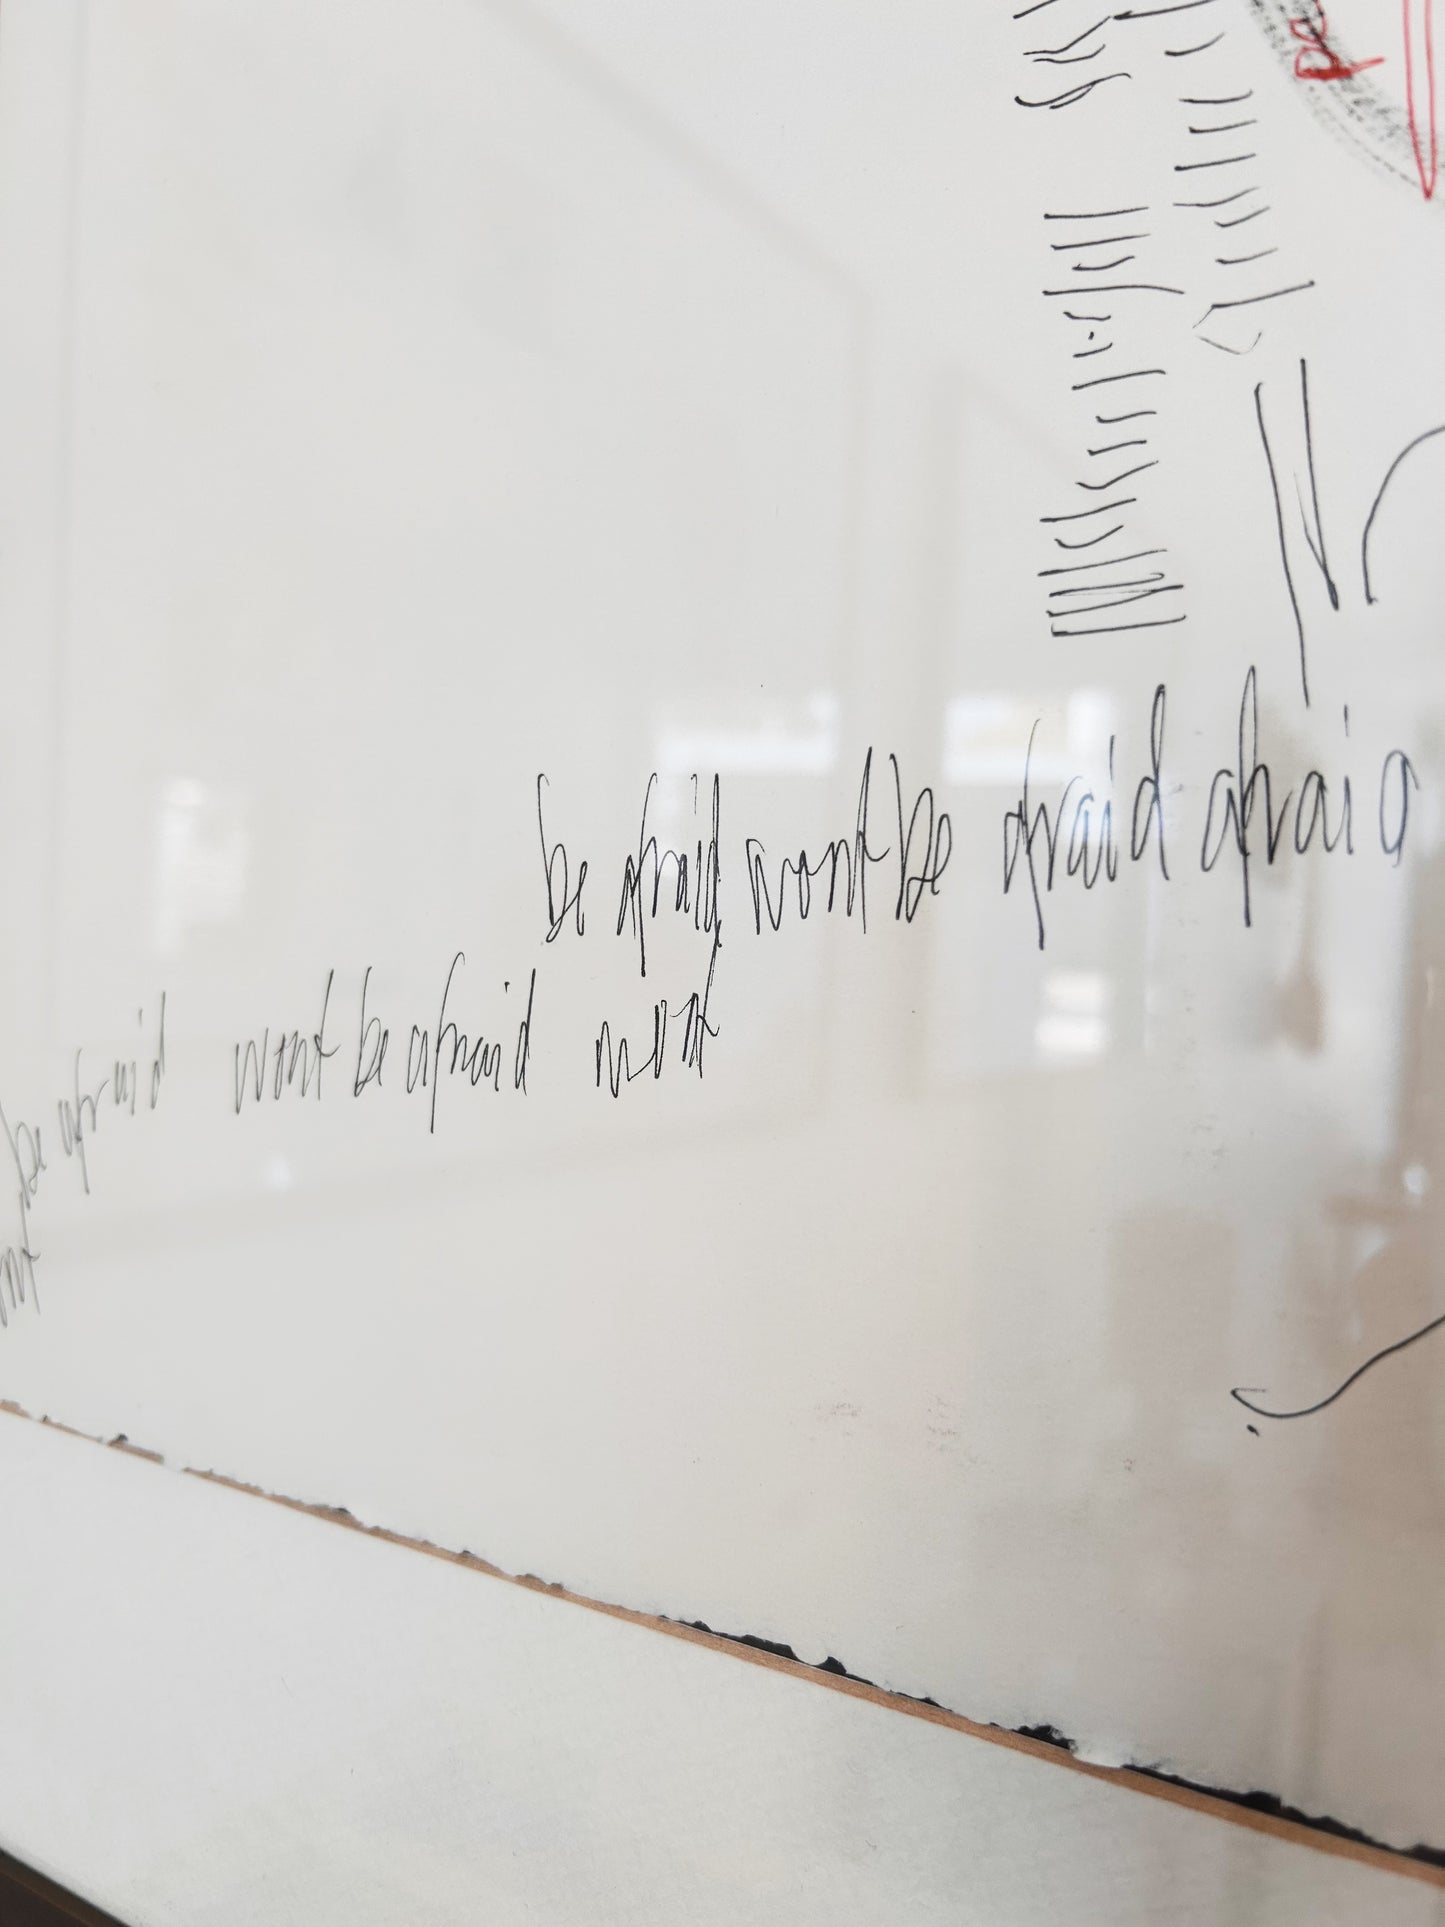 be afraid wont be afraid afraid
be afraid wont be afraid wont